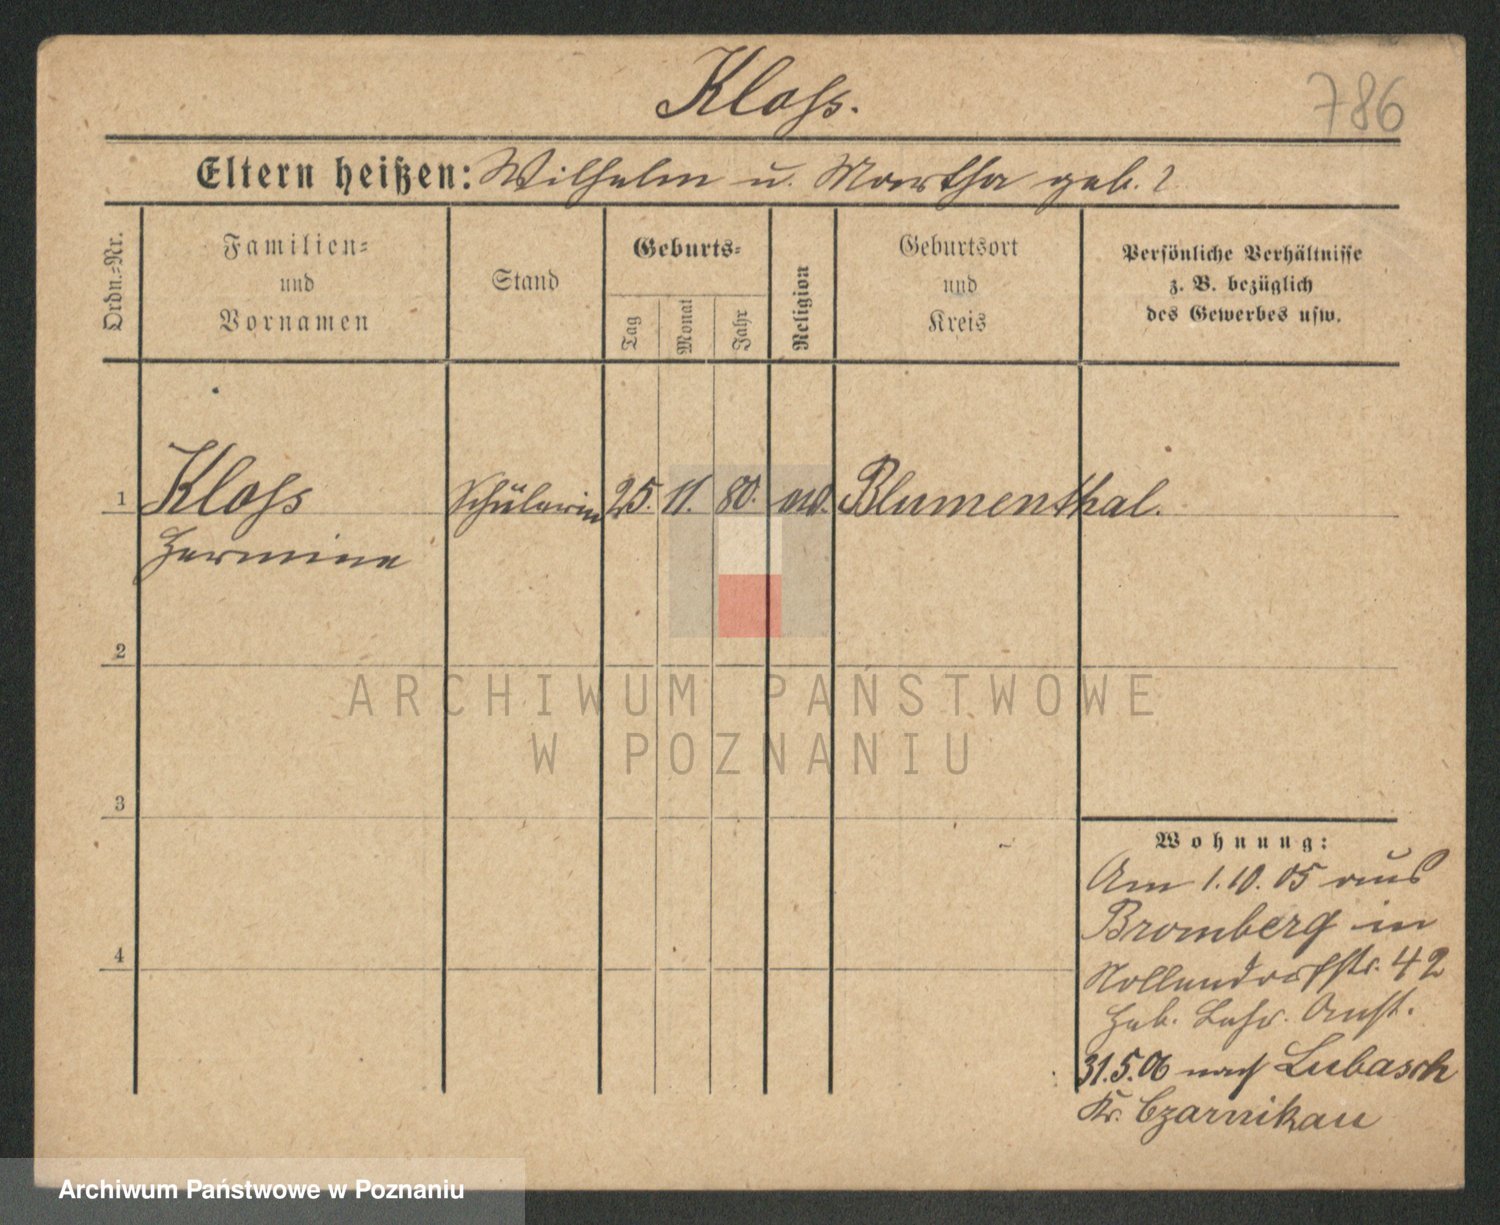 Kloss.
786
Eltern heißen: Wilhelm u. Martha geb. ?
Ordn.-Nr.
Familien-
und
Vornamen
Stand
Geburts-
Tag
Monat
Jahr
Religion
Geburtsort
und
Kreis
Persönliche Verhältnisse
z. B. bezüglich
des Gewerbes usw.
1 Kloss Schülerin 25. 11. 80. Blumenthal.
Hermine
2
3
4
Wohnung:
Am 1.10.05 aus
Bromberg in
Nollendorfstr. 42
Heb. Lehr. Anst.
31.5.06 nach Lubasch
Kr. Czarnikau
ARCHIWUM PAŃSTWOWE
W POZNANIU
Archiwum Państwowe w Poznaniu